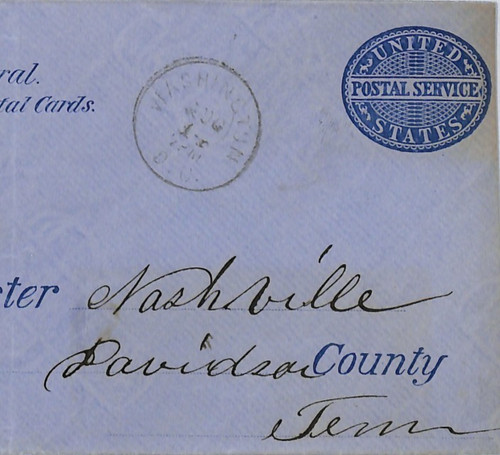 UNITED
POSTAL SERVICE
STATES
ral.
tal Cards.
WASHINGTON
AUG
ter Nashville
Davidson County
Tenn